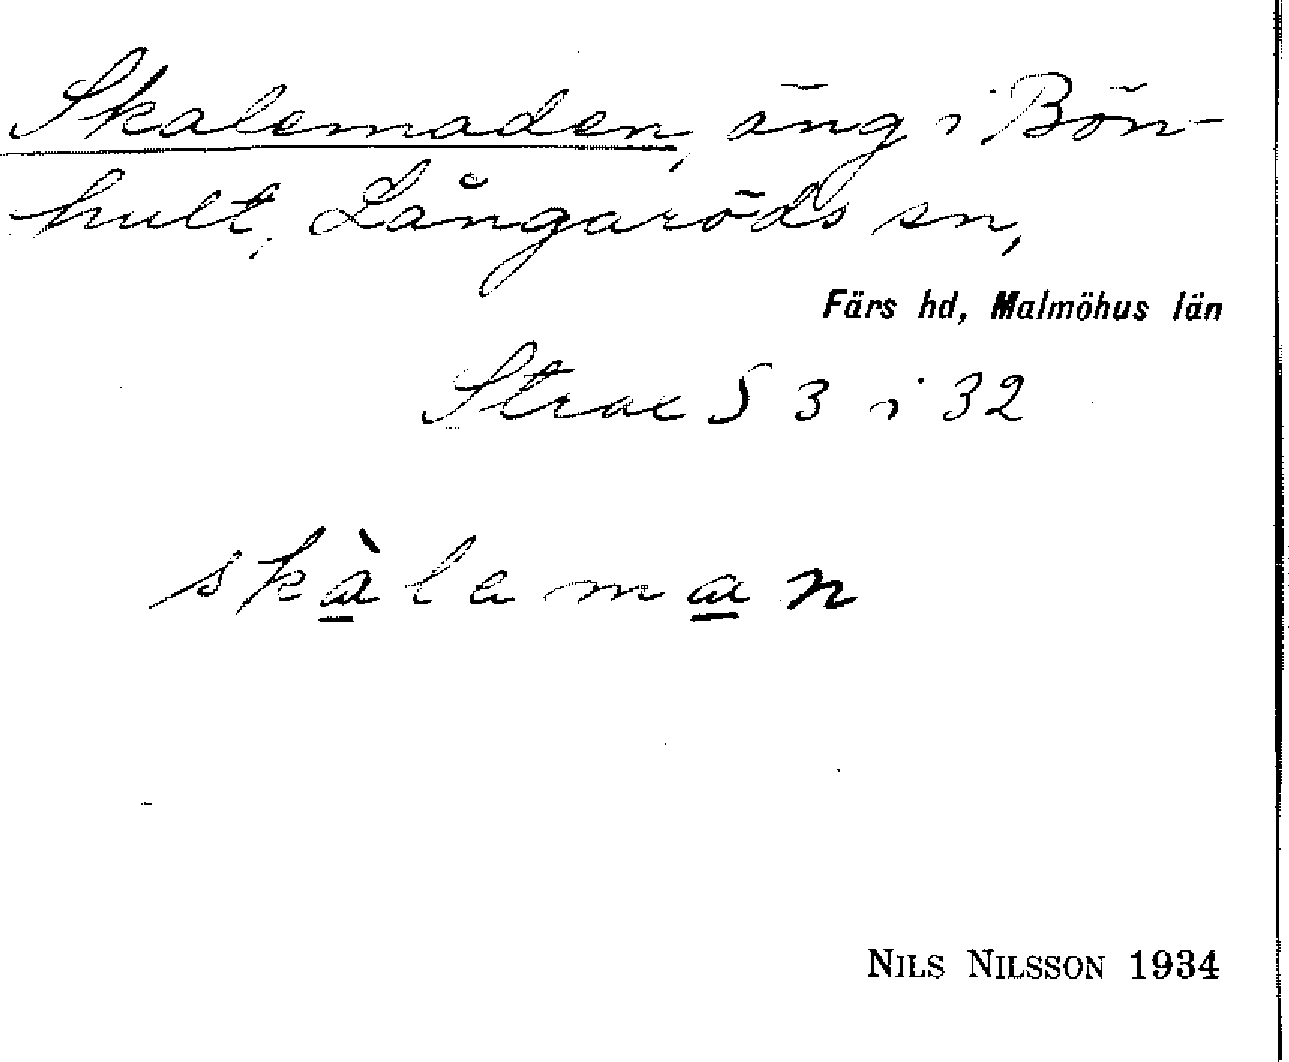 Skalemaden, äng i Bön-
hult, Långaröds sn,
Färs hd, Malmöhus län
Strax S 3 i 32
skàlaman
NILS NILSSON 1934